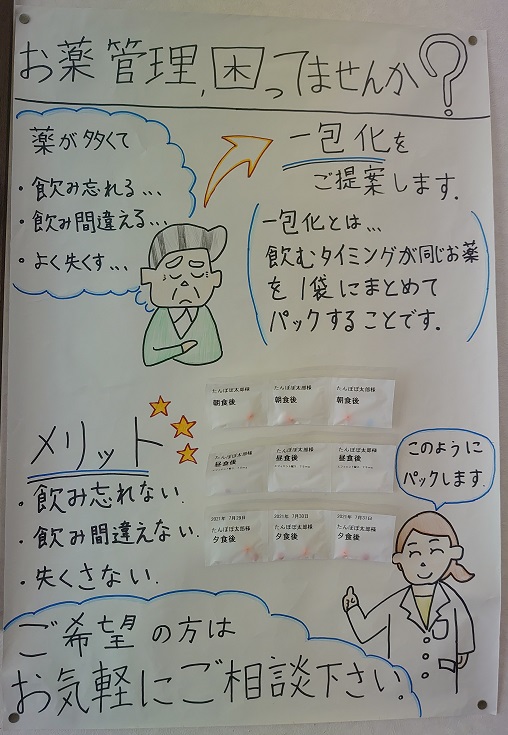 お薬管理、困ってませんか?
薬が多くて
・飲み忘れる...
・飲み間違える...
・よく失くす...
一包化を
ご提案します.
一包化とは...
飲むタイミングが同じお薬
を1袋にまとめて
パックすることです.
メリット
・飲み忘れない.
・飲み間違えない.
・失くさない.
たんぽぽ太郎様 たんぽぽ太郎様 たんぽぽ太郎様
朝食後 朝食後 朝食後
たんぽぽ太郎様 たんぽぽ太郎様 たんぽぽ太郎様
昼食後 昼食後 昼食後
2021年 7月29日 2021年 7月30日 2021年 7月31日
たんぽぽ太郎様 たんぽぽ太郎様 たんぽぽ太郎様
夕食後 夕食後 夕食後
このように
パックします.
ご希望の方は
お気軽にご相談下さい.